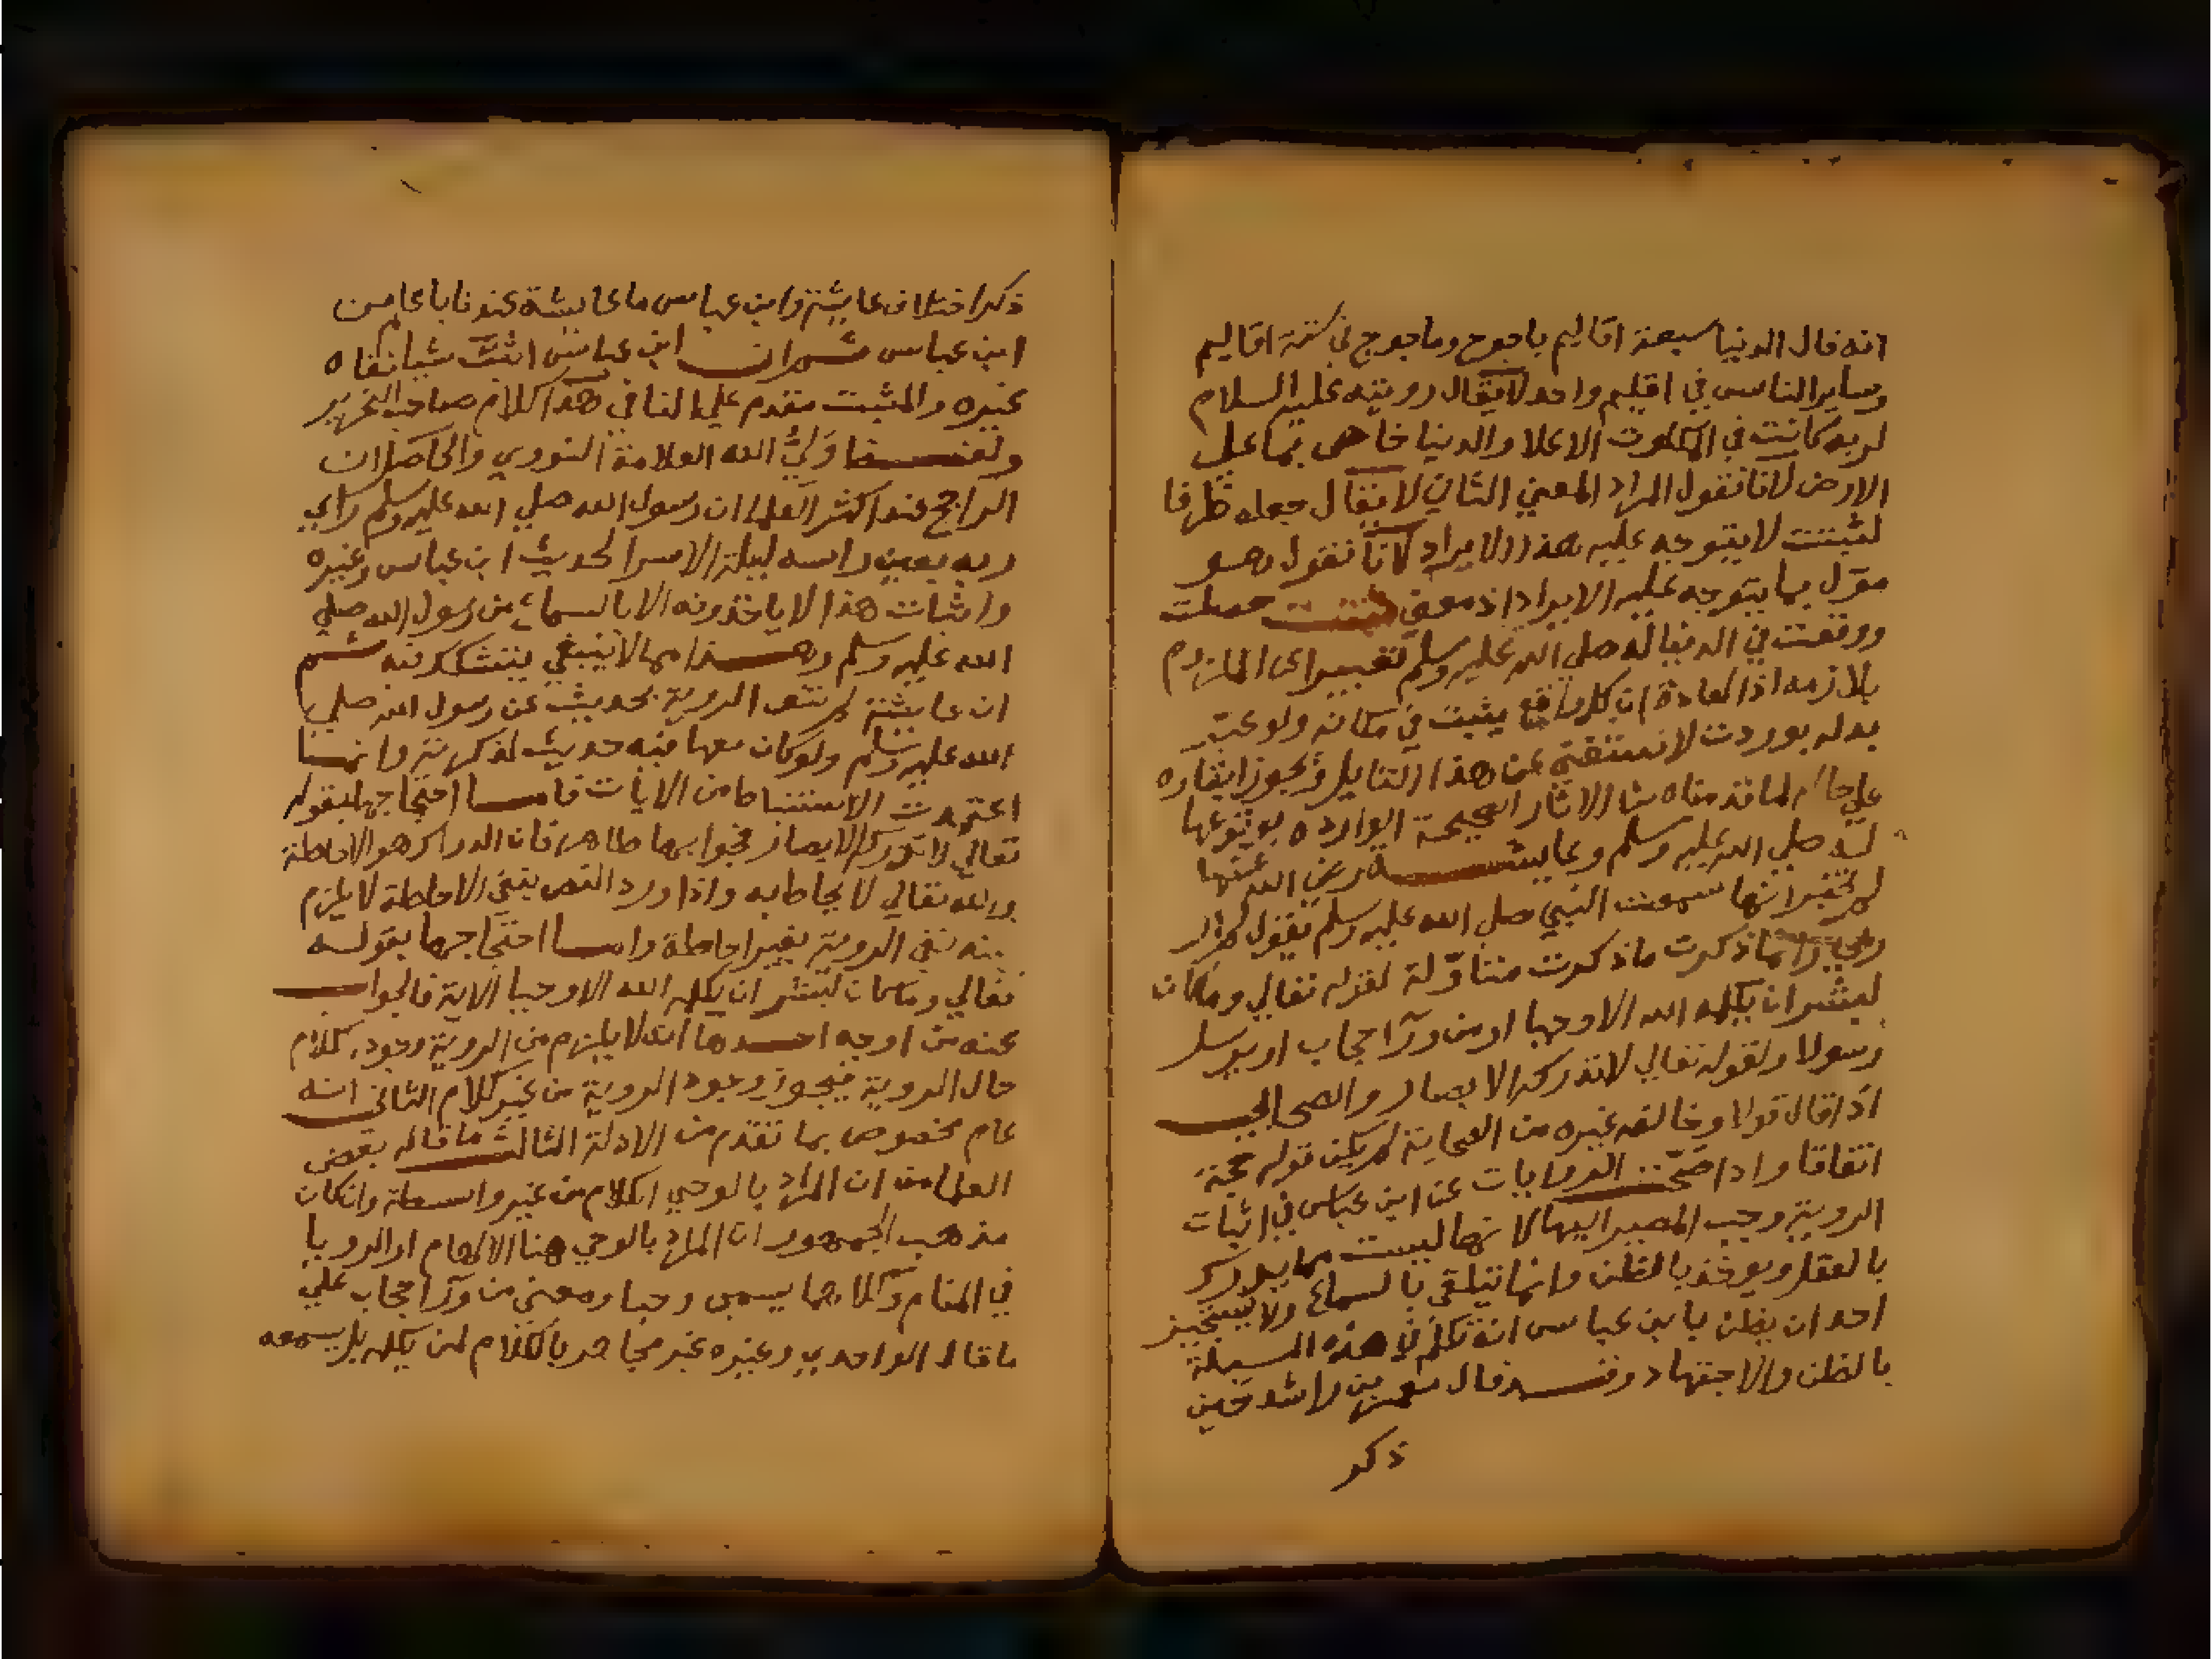 انه قال الدنيا سبعة اقاليم ياجوج وماجوج في ستة اقاليم
وساير الناس في اقليم واحد لا يقال رويته عليه السلام
لربه كانت في الملكوت الاعلا والدنيا خاص بما على
الارض لانا نقول المراد المعني الثاني لا يقال جعله ظرفا
لثبتت لا يتوجه عليه هذا الايراد لانا نقول وهو
مؤل بما يتوجه عليه الايراد اذ معني ثبتت حصلت
ووقعت في الدنيا له صلي الله عليه وسلم تعبيرا عن الملزوم
بلازمه اذ العادة ان كلما وقع يثبت في مكانه ولو عبر
بدله بوردت لاستغني عن هذا التاويل ويجوز ابقاره
علي حاله لما قدمناه من الاثار الصحيحة الواردة بوقوعها
له صلي الله عليه وسلم وعايشة رضي الله عنها
لم تخبر انها سمعت النبي صلي الله عليه وسلم يقول لم ار
ربي وانما ذكرت ما ذكرت متاولة لقوله تعالي وما كان
لبشر ان يكلمه الله الا وحيا او من ورآ حجاب او يرسل
رسولا ولقوله تعالي لا تدركه الابصار والصحابي
اذا قال قولا وخالفه غيره من الصحابة لم يكن قوله حجة
اتفاقا واذا صحت الروايات عن ابن عباس في اثبات
الروية وجب المصير اليها لانها ليست مما يدرك
بالعقل ويوخذ بالظن وانما يتلقي بالسماع ولا يستجيز
احد ان يظن بابن عباس انه تكلم في هذه المسيلة
بالظن والاجتهاد وقد قال معمر بن راشد حين
ذكر
ذكر اختلاف عايشة وابن عباس ما عايشة عندنا باعلم من
ابن عباس ثم ان ابن عباس اثبت شيا نفاه
غيره والمثبت مقدم علي النافي هذا كلام صاحب التحرير
ولفظ ولي الله العلامة النووي والحاصل ان
الراجح عند اكثر العلما ان رسول الله صلي الله عليه وسلم راي
ربه بعين راسه ليلة الاسرا لحديث ابن عباس وغيره
واثبات هذا لا ياخذونه الا بالسماع من رسول الله صلي
الله عليه وسلم وهذا مما لا ينبغي يتشكك فيه ثم
ان عايشة لم تنف الروية بحديث عن رسول الله صلي
الله عليه وسلم ولو كان معها فيه حديث لذكرته وانما
اعتمدت الاستنباط من الايات فاما احتجاجها بقوله
تعالي لا تدركه الابصار فجوابها ظاهر فان الادراك هو الاحاطة
والله تعالي لا يحاط به واذا ورد النص بنفي الاحاطة لا يلزم
منه نفي الروية بغير احاطة واما احتجاجها بقوله
تعالي وما كان لبشر ان يكلمه الله الا وحيا الاية فالجواب
عنه من اوجه احدها انه لا يلزم من الروية وجود كلام
حال الروية فيجوز وجود الروية من غير كلام الثاني انه
عام مخصوص بما تقدم من الادلة الثالث ما قاله بعض
العلما من ان المراد بالوحي الكلام من غير واسطة وان كان
مذهب الجمهور ان المراد بالوحي هنا الالهام او الرويا
في المنام وكلاهما يسمى وحيا ومعني من ورآ حجاب علي
ما قال الواحدي وغيره غير مجاهر بالكلام لمن يكلمه بل يسمعه